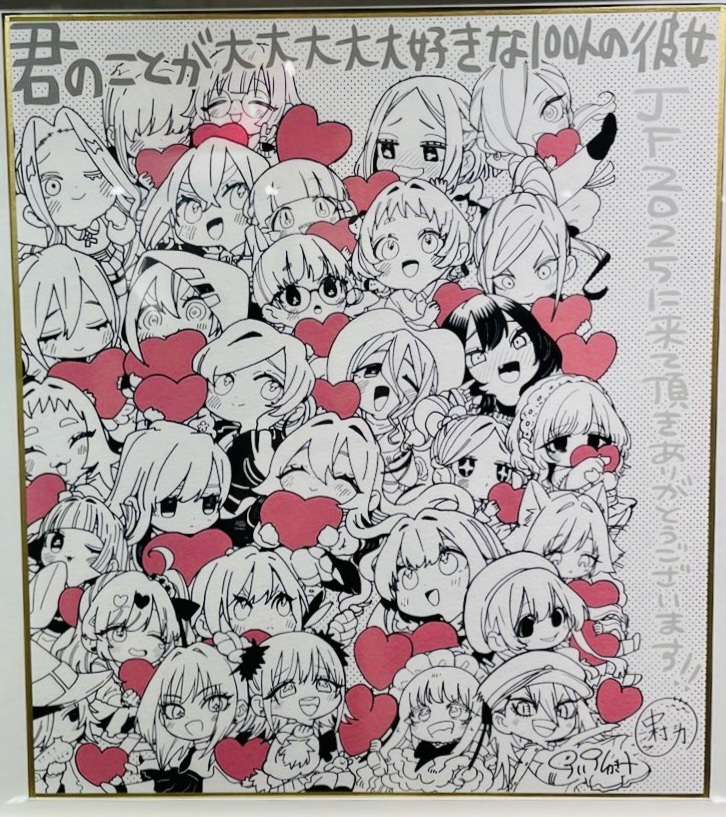 君のことが大大大大大好きな100人の彼女
JF2025に来て頂きありがとうございます!!